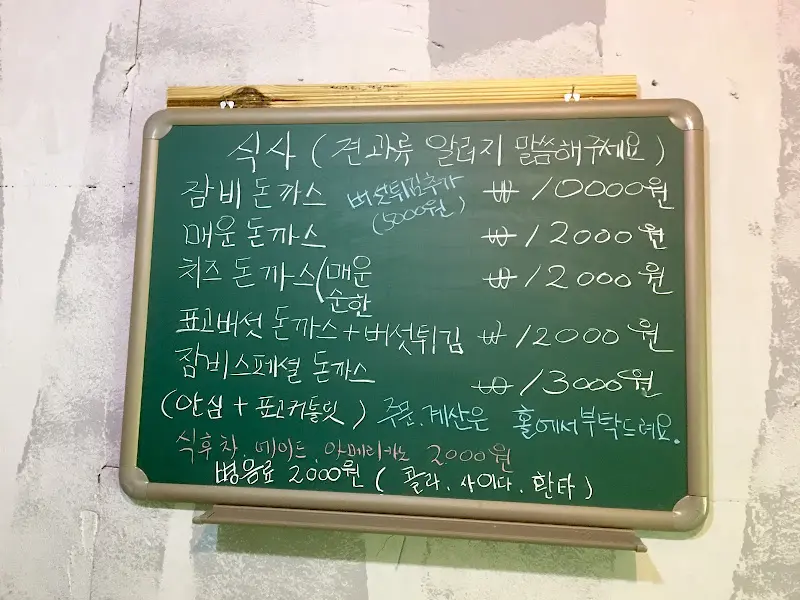 식사 (견과류 알러지 말씀해주세요)
잠비돈까스 ₩ 10000원
버섯튀김추가
(5000원)
매운돈까스 ₩ 12000원
치즈돈까스(매운 ₩ 12000원
순한
표고버섯돈까스+버섯튀김 ₩ 12000원
잠비스페셜돈까스 ₩ 13000원
(안심 + 표고커틀릿) 주문.계산은 홀에서부탁드려요.
식후차.에이드.아메리카노 2000원
병음료 2000원 (콜라.사이다.환타)